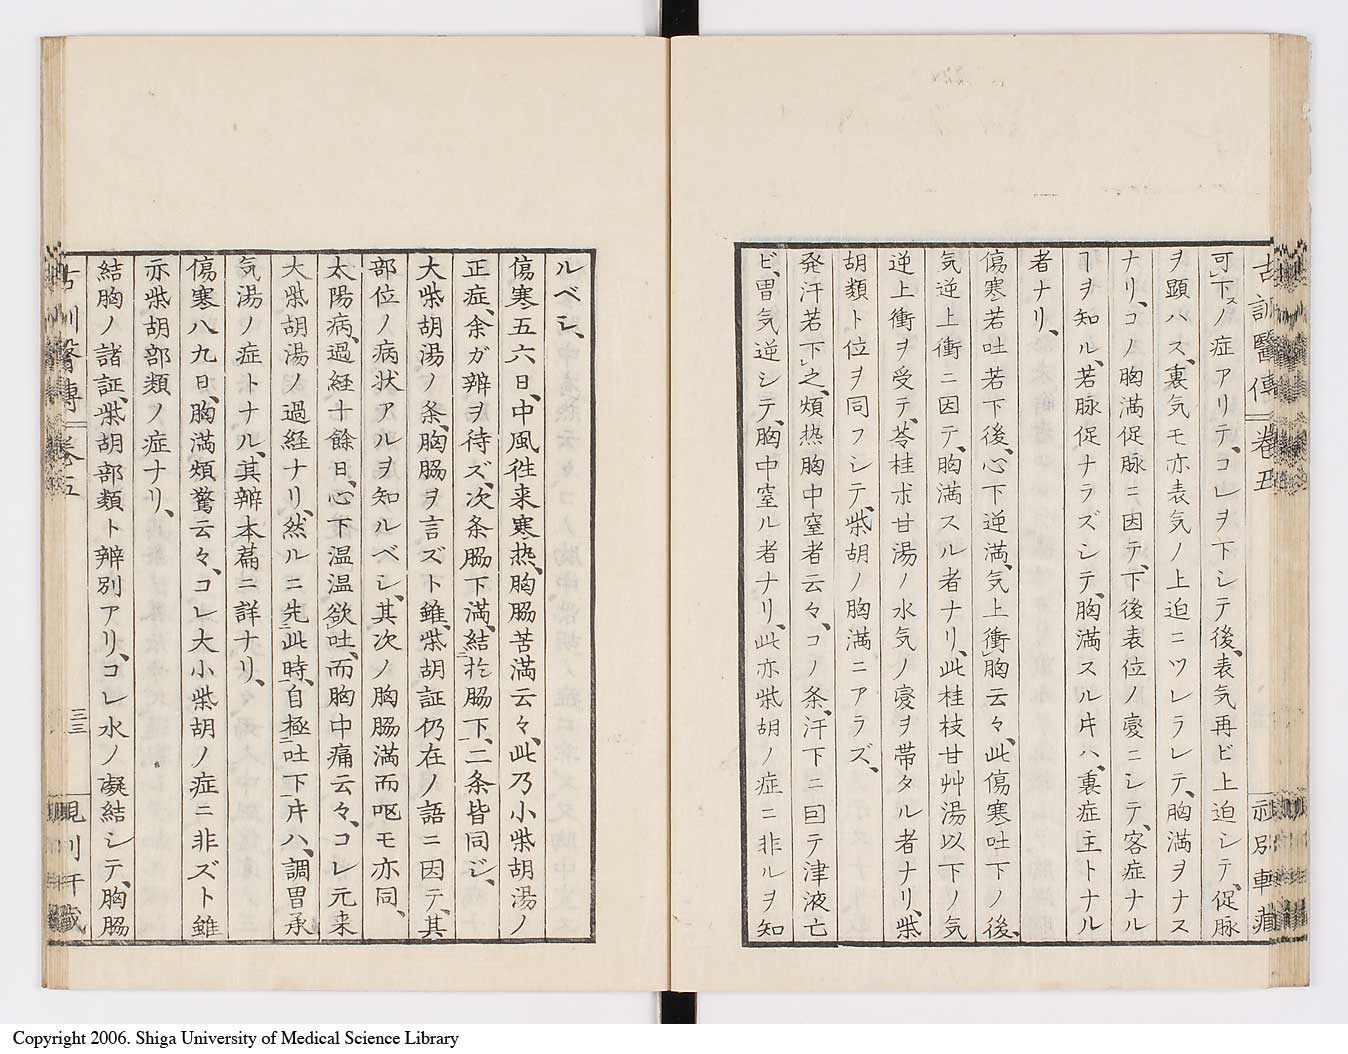 古訓醫傳 卷五
可下スノ症アリテ、コレヲ下シテ後、表気再ビ上迫シテ、促脉
ヲ顕ハス、裏気モ亦表気ノ上迫ニツレラレテ、胸満ヲナス
ナリ、コノ胸満促脉ニ因テ、下後表位ノ変ニシテ、客症ナル
ヿヲ知ル、若脉促ナラズシテ、胸満スル片ハ、裏症主トナル
者ナリ、
傷寒若吐若下後、心下逆満、気上衝胸云々、此傷寒吐下ノ後、
気逆上衝ニ因テ、胸満スル者ナリ、此桂枝甘艸湯以下ノ気
逆上衝ヲ受テ、苓桂朮甘湯ノ水気ノ変ヲ帯タル者ナリ、柴
胡類ト位ヲ同フシテ、柴胡ノ胸満ニアラズ、
発汗若下之、煩热胸中窒者云々、コノ条、汗下ニ因テ津液亡
ビ、胃気逆シテ、胸中窒ル者ナリ、此亦柴胡ノ症ニ非ルヲ知
ルベシ、
傷寒五六日、中風徃来寒热、胸脇苦満云々、此乃小柴胡湯ノ
正症、余ガ辨ヲ待ズ、次条脇下満、結二於脇下一、二条皆同ジ、
大柴胡湯ノ条、胸脇ヲ言ズト雖、柴胡証仍在ノ語ニ因テ、其
部位ノ病状アルヲ知ルベシ、其次ノ胸脇満而呕モ亦同、
太陽病、過経十餘日、心下温温欲吐、而胸中痛云々、コレ元来
大柴胡湯過経ナリ、然ルニ先二此時一、自極二吐下一片ハ、調胃承
気湯ノ症トナル、其辨本篇ニ詳ナリ、
傷寒八九日、胸満煩驚云々、コレ大小柴胡ノ症ニ非ズト雖
亦柴胡部類ノ症ナリ、
結胸ノ諸証、柴胡部類ト辨別アリ、コレ水ノ凝結シテ、胸脇
古訓醫傳 卷五
三三
Copyright 2006. Shiga University of Medical Science Library